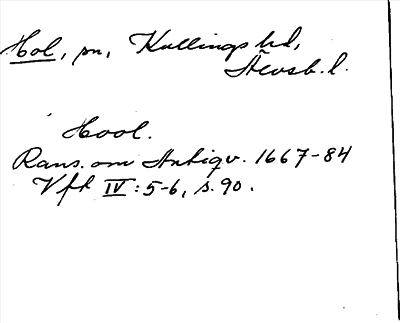 Hol, sn, Kullings hd,
Älvsb. l.
Hool.
Rans. om Antiqv. 1667-84
Vft IV: 5-6, s. 90.